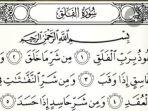 سُورَةُ الفَلَقِ
بِسْمِ اللَّهِ الرَّحْمَٰنِ الرَّحِيمِ
أَعُوذُ بِرَبِّ الْفَلَقِ ١ مِن شَرِّ مَا خَلَقَ ٢ وَ
غَاسِقٍ إِذَا وَقَبَ ٣ وَمِن شَرِّ النَّفَّاثَاتِ فِ
الْعُقَدِ ٤ وَمِن شَرِّ حَاسِدٍ إِذَا حَسَدَ ٥